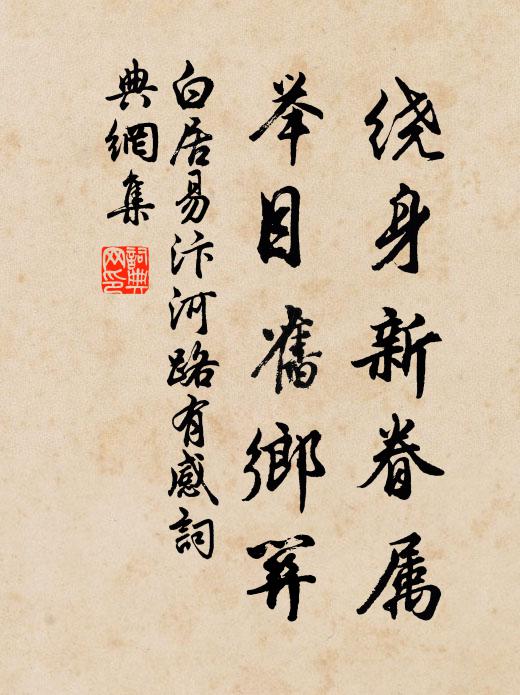 绕身新眷属
举目舊鄉關
白居易汴河路有感詞
典網集
詞典
网印